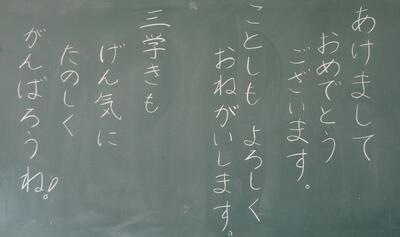 あけまして
おめでとう
ございます。
ことしも よろしく
おねがいします。
三学きも
げん気に
たのしく
がんばろうね!